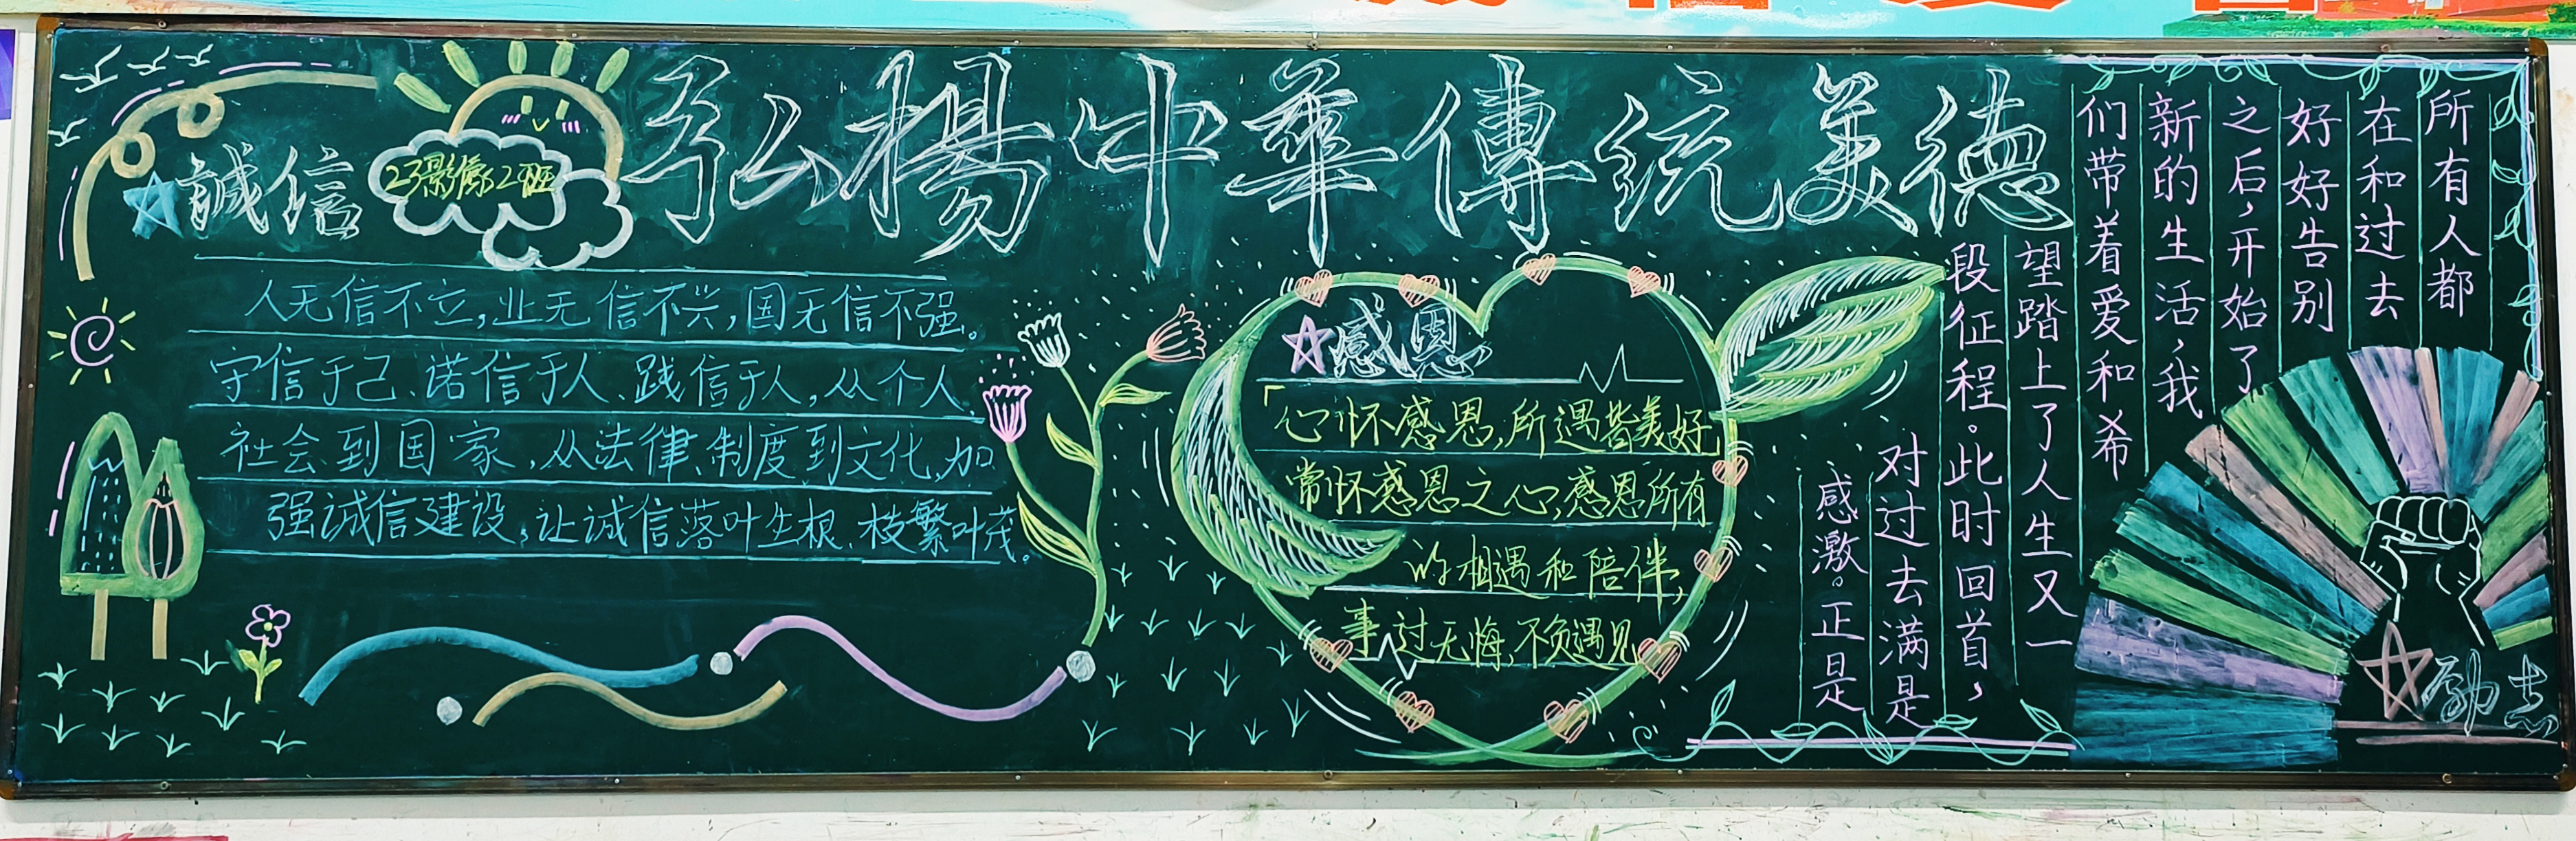 弘揚中華傳統美德
誠信
23影像2班
人无信不立,业无信不兴,国无信不强。
守信于己、诺信于人、践信于人,从个人、
社会到国家,从法律、制度到文化,加
强诚信建设,让诚信落叶生根、枝繁叶茂。
感恩
「心怀感恩,所遇皆美好
常怀感恩之心,感恩所有
的相遇和陪伴,
事过无悔,不负遇见
所有人都
在和过去
好好告别
之后,开始了
新的生活,我
们带着爱和希
望踏上了人生又一
段征程。此时回首,
对过去满是
感激。正是
励志